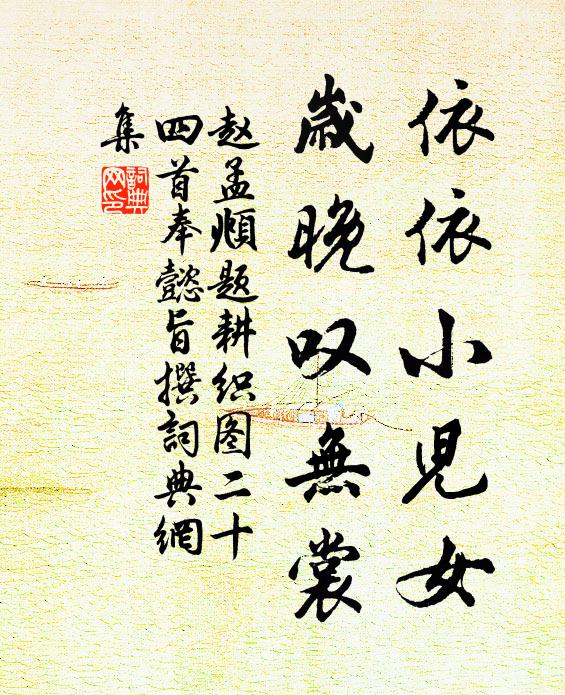 依依小兒女
歲晚叹無裳
赵孟頫题耕织图二十
四首奉懿旨撰詞典網
集
詞典
网印